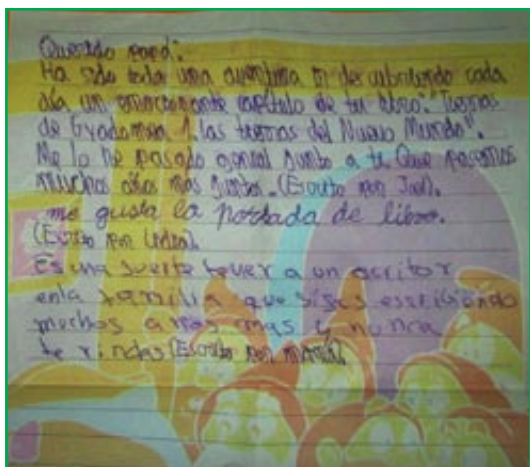 Querido papá:
Ha sido toda una aventura ir descubriendo cada
día un emocionante capítulo de tu libro: "Tierras
de Gyadomen 1, las tierras del Nuevo Mundo".
Me lo he pasado genial junto a ti. Que pasemos
muchos años más juntos. (Escrito por Joel).
me gusta la portada de libro.
(Escrito por
Es una suerte tener a un escritor
en la familia que sigas escribiendo
muchos años mas y nunca
te rindas (Escrito por María).